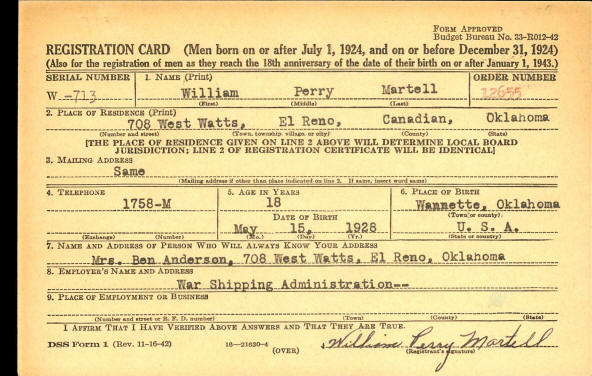 FORM APPROVED
Budget Bureau No. 33-R012-42
REGISTRATION CARD (Men born on or after July 1, 1924, and on or before December 31, 1924)
(Also for the registration of men as they reach the 18th anniversary of the date of their birth on or after January 1, 1943.)
SERIAL NUMBER 1. NAME (Print) ORDER NUMBER
W -713 William Perry Martell 12655
(First) (Middle) (Last)
2. PLACE OF RESIDENCE (Print)
708 West Watts, El Reno, Canadian, Oklahoma
(Number and street) (Town, township, village, or city) (County) (State)
[THE PLACE OF RESIDENCE GIVEN ON LINE 2 ABOVE WILL DETERMINE LOCAL BOARD
JURISDICTION; LINE 2 OF REGISTRATION CERTIFICATE WILL BE IDENTICAL]
3. MAILING ADDRESS
Same
(Mailing address if other than place indicated on line 2. If same, insert word same)
4. TELEPHONE 5. AGE IN YEARS 6. PLACE OF BIRTH
1758-M 18 Wannette, Oklahoma
DATE OF BIRTH (Town or county)
May 15, 1928 U. S. A.
(Exchange) (Number) (Mo.) (Day) (Yr.) (State or country)
7. NAME AND ADDRESS OF PERSON WHO WILL ALWAYS KNOW YOUR ADDRESS
Mrs. Ben Anderson, 708 West Watts, El Reno, Oklahoma
8. EMPLOYER'S NAME AND ADDRESS
War Shipping Administration--
9. PLACE OF EMPLOYMENT OR BUSINESS
(Number and street or R. F. D. number) (Town) (County) (State)
I AFFIRM THAT I HAVE VERIFIED ABOVE ANSWERS AND THAT THEY ARE TRUE.
DSS Form 1 (Rev. 11-16-42) 16—21630-4 William Perry Martell
(OVER) (Registrant's signature)